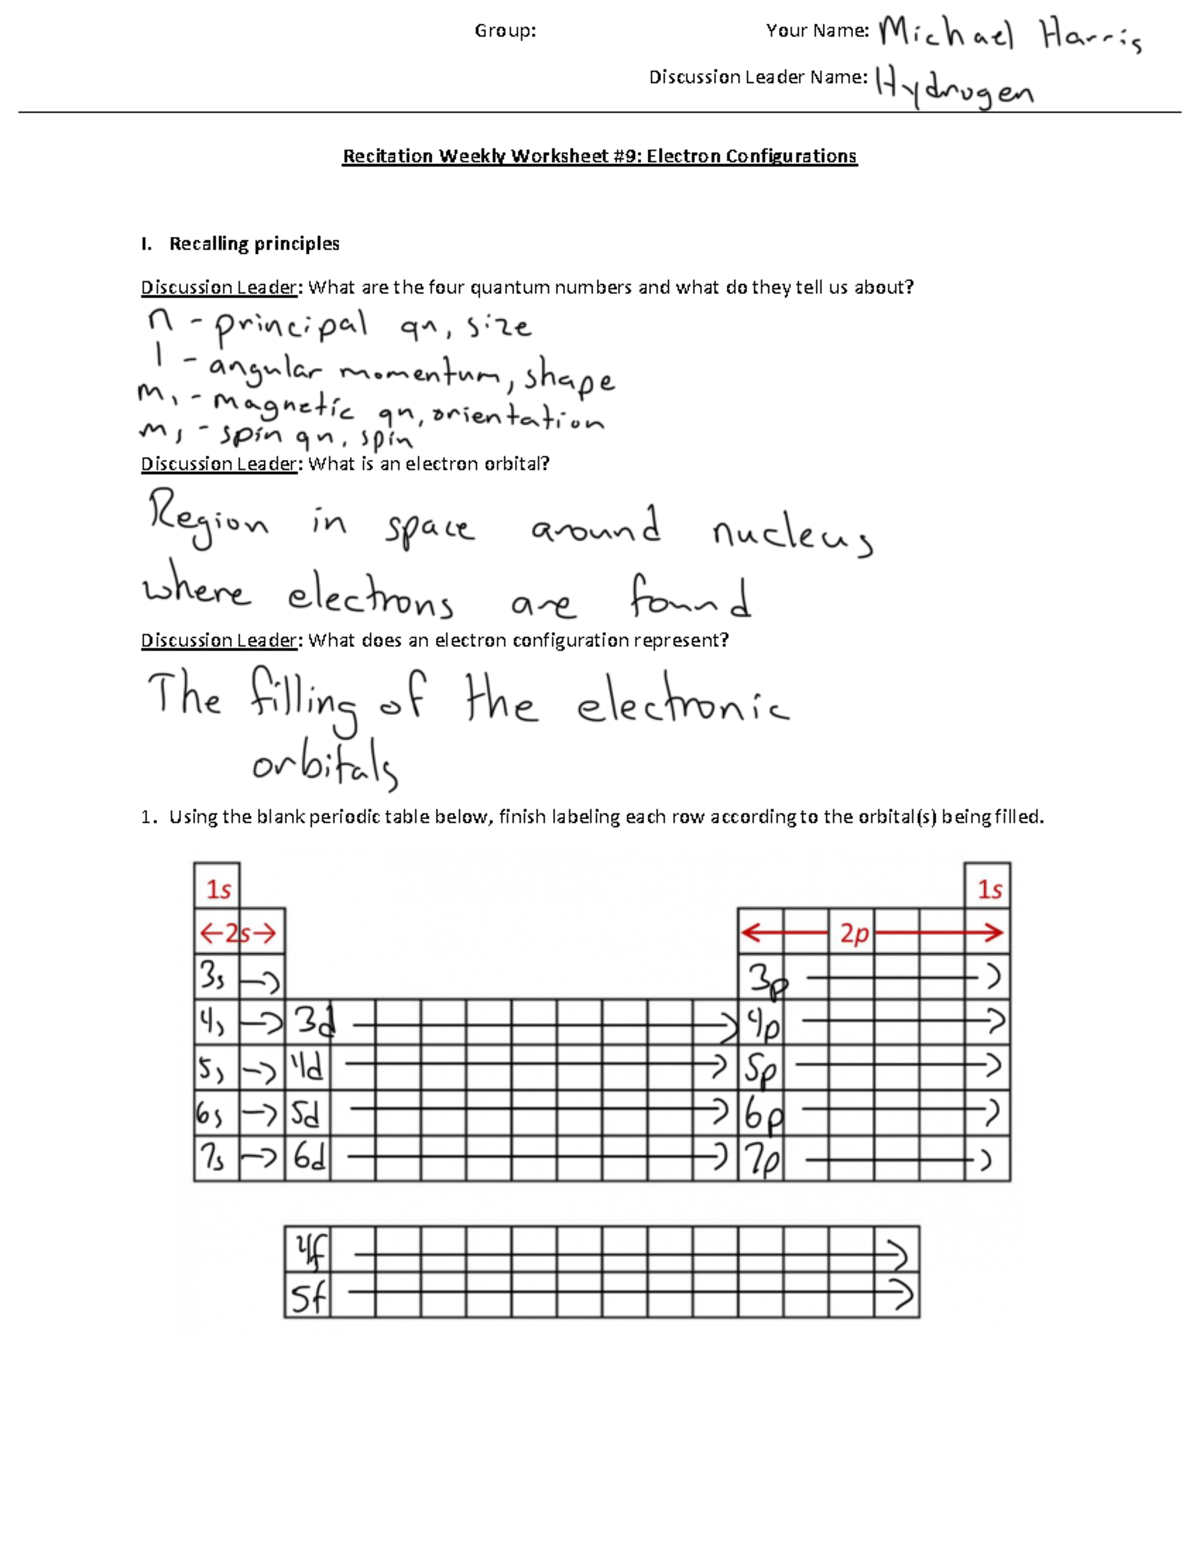 Group:
Your Name: Michael Harris
Discussion Leader Name: Hydrogen
Recitation Weekly Worksheet #9: Electron Configurations
I. Recalling principles
Discussion Leader: What are the four quantum numbers and what do they tell us about?
n - principal qn, size
l - angular momentum, shape
ml - magnetic qn, orientation
ms - spin qn, spin
Discussion Leader: What is an electron orbital?
Region in space around nucleus
where electrons are found
Discussion Leader: What does an electron configuration represent?
The filling of the electronic
orbitals
1. Using the blank periodic table below, finish labeling each row according to the orbital(s) being filled.
1s 1s
←2s→ ← 2p →
3s → 3p →
4s → 3d → 4p →
5s → 4d → 5p →
6s → 5d → 6p →
7s → 6d → 7p →
4f →
5f →